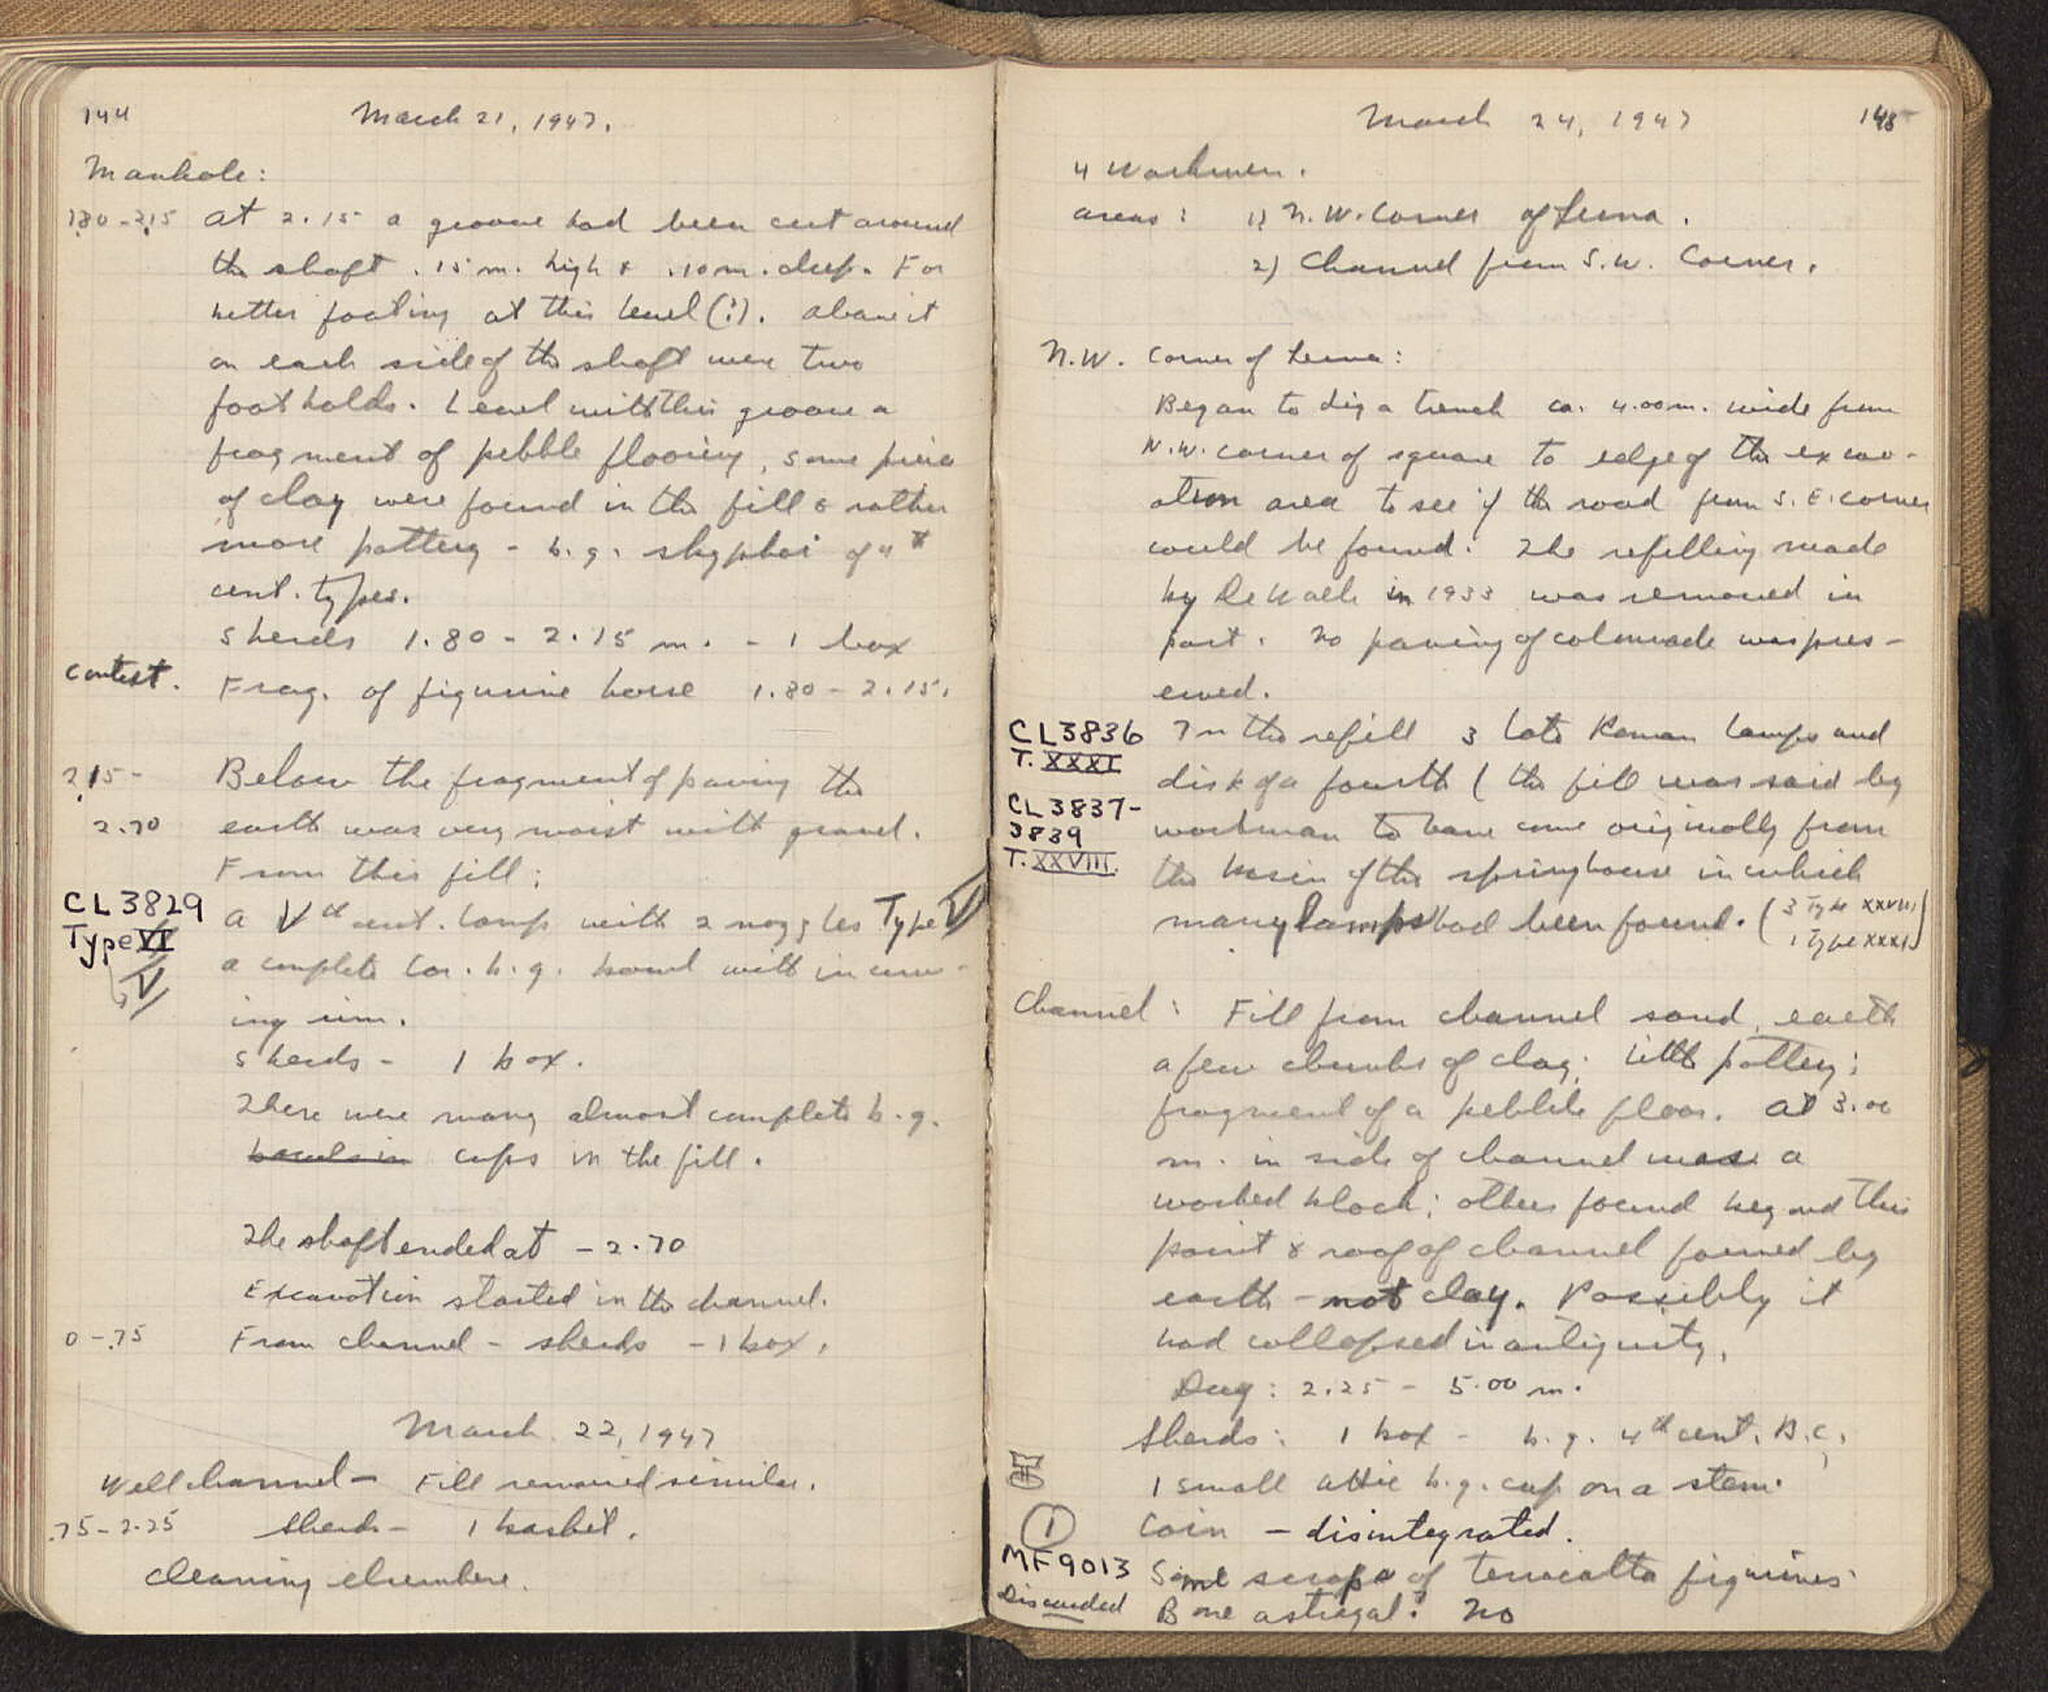 144
March 21, 1947.
Manhole:
1.80 - 2.15 At 2.15 a groove had been cut around
the shaft .15 m. high & .10 m. deep. For
better footing at this level (?). Above it
on each side of the shaft were two
foot holds. Level with this groove a
fragment of pebble flooring, some piece
of clay were found in the fill & rather
more pottery - b.g. skyphoi of 4th
cent. types.
Sherds 1.80 - 2.15 m. - 1 box
Context. Frag. of figurine horse 1.80 - 2.15.
2.15 - Below the fragment of paving the
2.70 earth was very moist with gravel.
From this fill:
CL3829 a Vth cent. lamp with 2 nozzles Type V
Type VI a complete Cor. b.g. bowl with incurv-
V ing rim.
Sherds - 1 box.
There were many almost complete b.g.
bowls in cups in the fill.
The shaft ended at - 2.70
Excavation started in the channel.
0 - .75 From channel - sherds - 1 box.
March 22, 1947
Well channel - Fill remained similar.
.75 - 2.25 Sherds - 1 basket.
Cleaning elsewhere.
March 24, 1947 145
4 Workmen.
areas: 1) N.W. Corner of Lerna.
2) Channel from S.W. Corner.
N.W. Corner of Lerna:
Began to dig a trench ca. 4.00 m. wide from
N.W. corner of square to edge of the excav-
ation area to see if the road from S.E. corner
could be found. The refilling made
by De Waele in 1933 was removed in
part. No paving of colonnade was pres-
erved.
CL3836 In the refill 3 late Roman lamps and
T. XXXI disk of a fourth (the fill was said by
CL3837- workman to have come originally from
3839 the basin of the springhouse in which
T. XXVIII. many lamps had been found. (3 Type XXVIII
1 Type XXXI)
Channel: Fill from channel sand, earth
a few chunks of clay; little pottery;
fragment of a pebble floor. At 3.00
m. in side of channel was a
worked block; others found beyond this
point & roof of channel formed by
earth - not clay. Possibly it
had collapsed in antiquity.
Dug: 2.25 - 5.00 m.
Sherds: 1 box - b.g. 4th cent. B.C.
1 small Attic b.g. cup on a stem.
1 Coin - disintegrated.
MF9013 Some scraps of terracotta figurines
Discarded Bone astragal? No